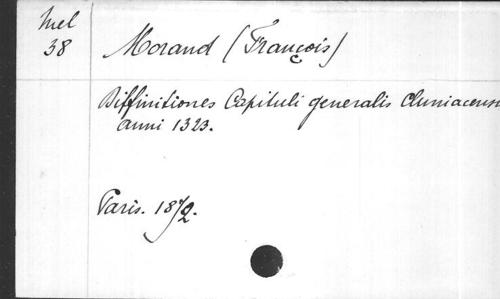 Mel
38
Morand (François)
Diffinitiones Capituli generalis Cluniacens
anni 1323.
Paris. 1872.